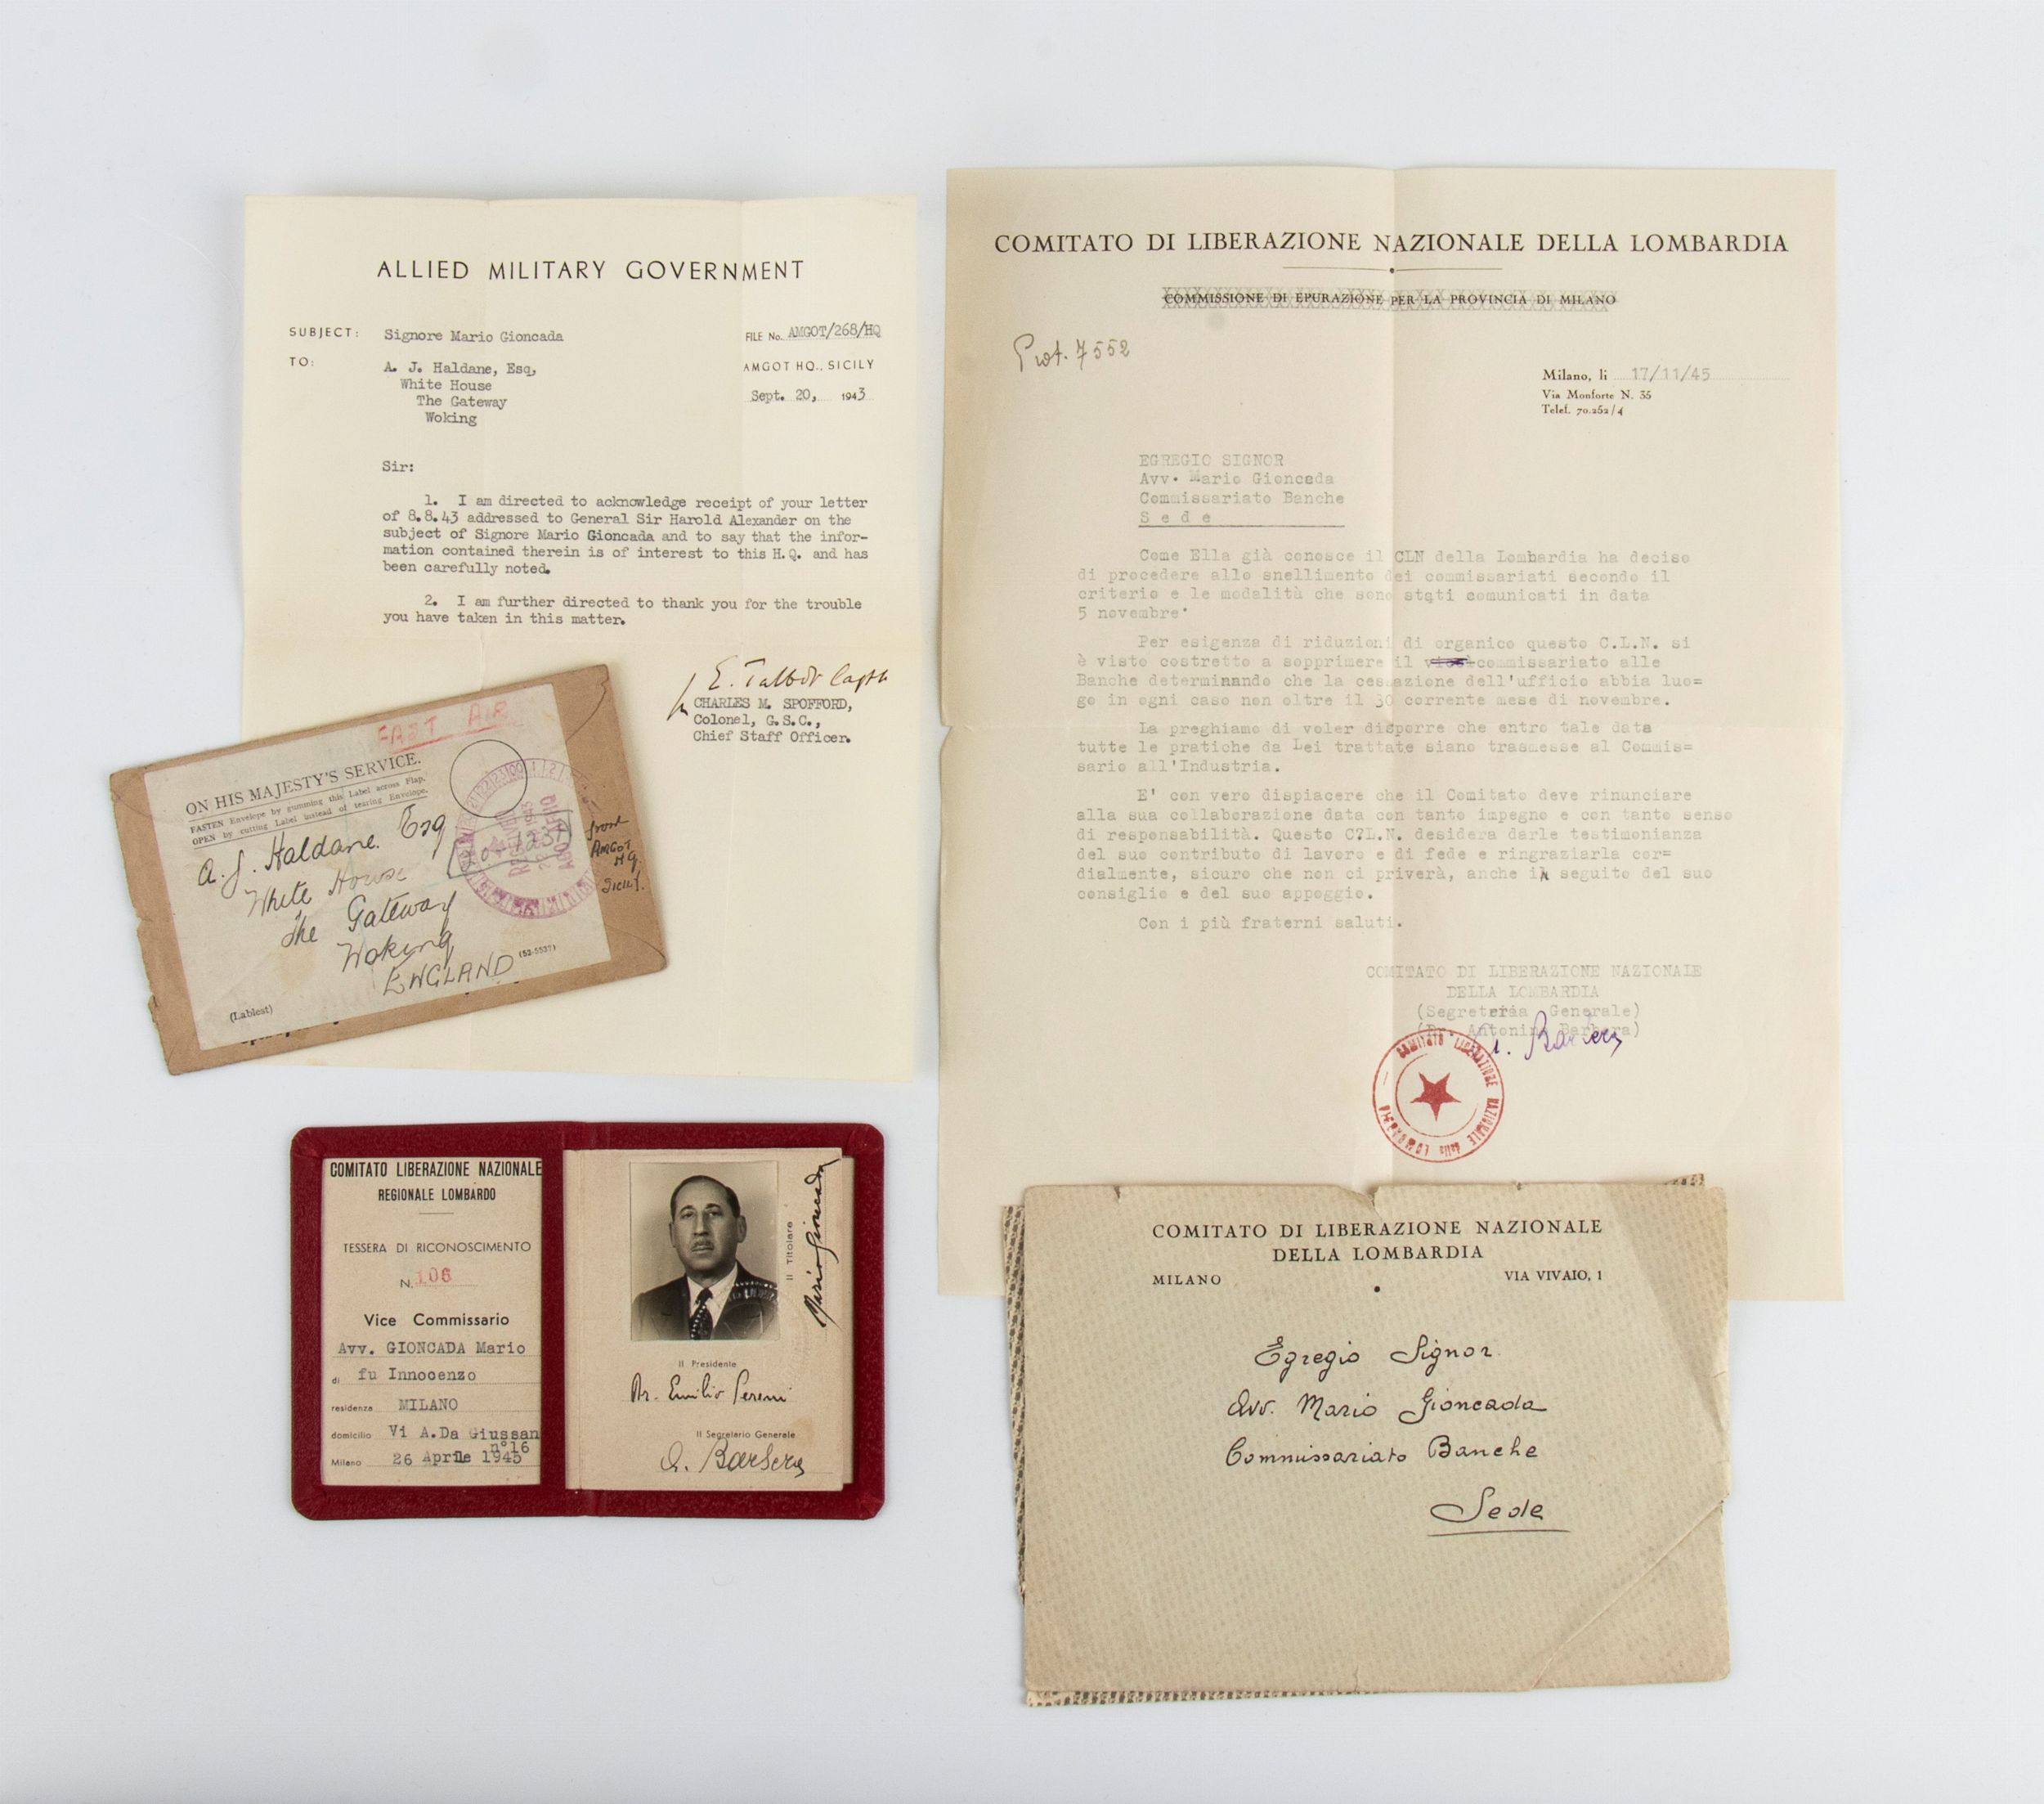 ALLIED MILITARY GOVERNMENT
SUBJECT: Signore Mario Gioncada
FILE No. AMGOT/268/HQ
TO: A. J. Haldane, Esq,
White House
The Gateway
Woking
AMGOT HQ., SICILY
Sept. 20, 1943
Sir:
1. I am directed to acknowledge receipt of your letter
of 8.8.43 addressed to General Sir Harold Alexander on the
subject of Signore Mario Gioncada and to say that the infor-
mation contained therein is of interest to this H.Q. and has
been carefully noted.
2. I am further directed to thank you for the trouble
you have taken in this matter.
E. Talbot Capt
CHARLES M. SPOFFORD,
Colonel, G.S.C.,
Chief Staff Officer.
FAST AIR
ON HIS MAJESTY'S SERVICE.
FASTEN Envelope by gumming this Label across Flap.
OPEN by cutting Label instead of tearing Envelope.
A. J. Haldane. Esq
White House
The Gateway
Woking
ENGLAND
(52-5537)
(Lablest)
from
AMGOT
HQ.
Sicily.
COMITATO LIBERAZIONE NAZIONALE
REGIONALE LOMBARDO
TESSERA DI RICONOSCIMENTO
N. 106
Vice Commissario
Avv. GIONCADA Mario
di fu Innocenzo
residenza MILANO
domicilio Vi A.Da Giussan
n°16
Milano 26 Aprile 1945
Il Titolare
Mario Gioncada
Il Presidente
Dr. Emilio Sereni
Il Segretario Generale
A. Barbera
COMITATO DI LIBERAZIONE NAZIONALE DELLA LOMBARDIA
COMMISSIONE DI EPURAZIONE PER LA PROVINCIA DI MILANO
Prot. 7552
Milano, li 17/11/45
Via Monforte N. 35
Telef. 70.252/4
EGREGIO SIGNOR
Avv. Mario Gioncada
Commissariato Banche
Sede
Come Ella già conosce il CLN della Lombardia ha deciso
di procedere allo snellimento dei commissariati secondo il
criterio e le modalità che sono stati comunicati in data
5 novembre'
Per esigenza di riduzioni di organico questo C.L.N. si
è visto costretto a sopprimere il commissariato alle
Banche determinando che la cessazione dell'ufficio abbia luo=
go in ogni caso non oltre il 30 corrente mese di novembre.
La preghiamo di voler disporre che entro tale data
tutte le pratiche da Lei trattate siano trasmesse al Commis=
sario all'Industria.
E' con vero dispiacere che il Comitato deve rinunciare
alla sua collaborazione data con tanto impegno e con tanto senso
di responsabilità. Questo C?L.N. desidera darle testimonianza
del suo contributo di lavoro e di fede e ringraziarla cor=
dialmente, sicuro che non ci priverà, anche in seguito del suo
consiglio e del suo appoggio.
Con i più fraterni saluti.
COMITATO DI LIBERAZIONE NAZIONALE
DELLA LOMBARDIA
(Segreteria Generale)
(Dr. Antonino Barbera)
A. Barbera
COMITATO LIBERAZIONE NAZIONALE della LOMBARDIA
COMITATO DI LIBERAZIONE NAZIONALE
DELLA LOMBARDIA
MILANO
VIA VIVAIO, 1
Egregio Signor
Avv. Mario Gioncada
Commissariato Banche
Sede